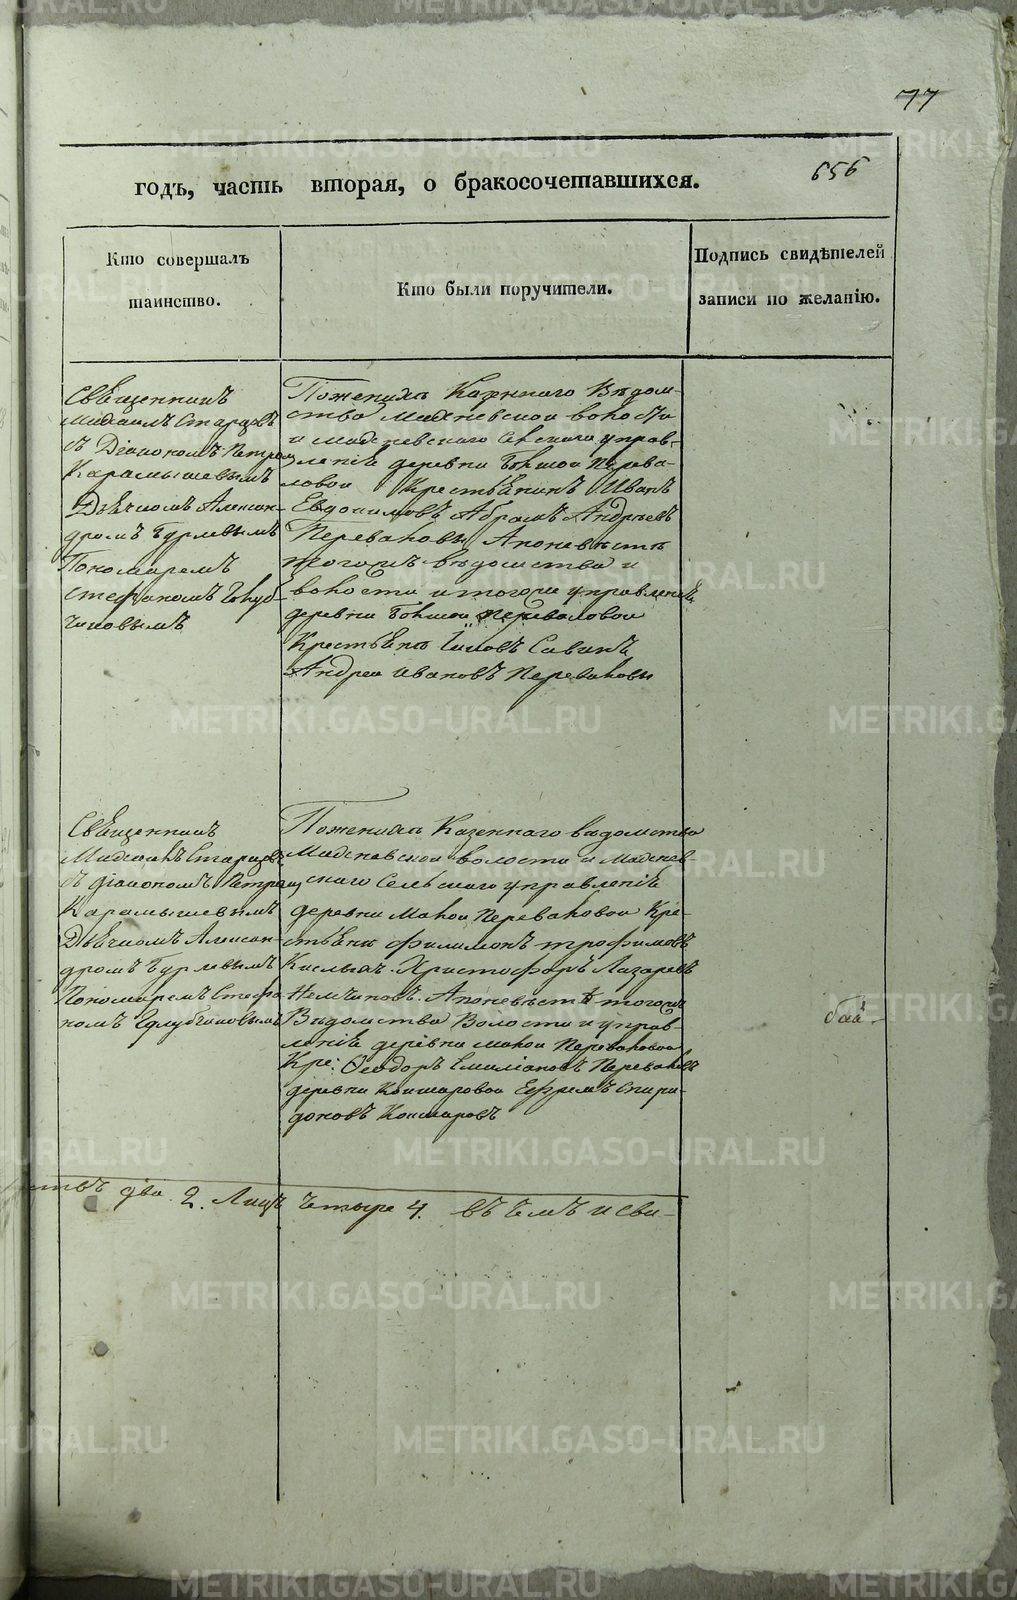 77
656
годъ, часть вторая, о бракосочетавшихся.
Кто совершалъ
таинство.
Кто были поручители.
Подпись свидѣтелей
записи по желанію.
Священникъ
Михаилъ Старцовъ
съ Діакономъ Петромъ
Карамышевымъ
Дьячкомъ Алексан-
дромъ Бурлевымъ
Пономаремъ
Стефаномъ Голуб-
чиковымъ
Поженихѣ Казеннаго Вѣдом-
ства Махневской волости
и Махневскаго Селскаго управ-
леніѣ деревни Болшой Перева-
ловой Крестьѣнинъ Иванъ
Евдокимовъ Абрамъ Андрѣевъ
Переваловы Апоневѣстѣ
тогожъ вѣдомства и
волости итогоже управленіѣ
деревни Болшой Переваловой
Крестьѣнѣ Савинъ
Андреи Ивановъ Переваловы
Священникъ
Михаилъ Старцовъ
съ діакономъ Петромъ
Карамышевымъ
Дьячкомъ Алексан-
дромъ Бурлевымъ
Пономаремъ Стефа-
номъ Голубчиковымъ
Поженихѣ Казеннаго вѣдомства
Махневской волости и Махнев-
скаго Сельскаго управленіѣ
деревни Малой Переваловой Кре-
стьѣни Филимонъ Трофимовъ
Кислыхъ. Христофоръ Лазаревъ
Немчиновъ. Апоневѣстѣ тогоже
Вѣдомства Волости и управ-
леніѣ деревни малой Переваловой
Кре: Ѳеодоръ Емиліановъ Переваловъ
деревни Кокшаровой Ефремъ Спири-
доновъ Кокшаровъ
два 2. Лицъ четыре 4. въ чемъ и сви-
METRIKI.GASO-URAL.RU